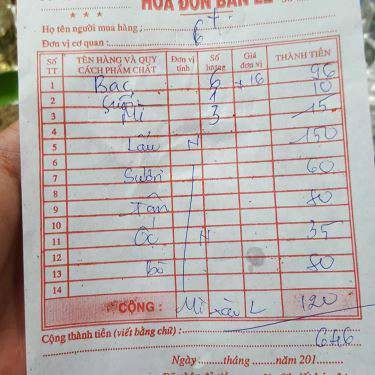 HÓA ĐƠN BÁN LẺ
* * *
Họ tên người mua hàng :
Đơn vị cơ quan :
Số TT TÊN HÀNG VÀ QUY CÁCH PHẨM CHẤT Đơn vị tính Số lượng Giá đơn vị THÀNH TIỀN
1 Bạc 6 16 96
2 1 10
3 Mì 3 15
4
5 Lẩu N 150
6
7 Sườn 60
8
9 80
10
11 Ốc N 35
12
13 bò 80
14
CỘNG : Mì xào L 120
Cộng thành tiền (viết bằng chữ) : 646
Ngày ........tháng ........năm 201....